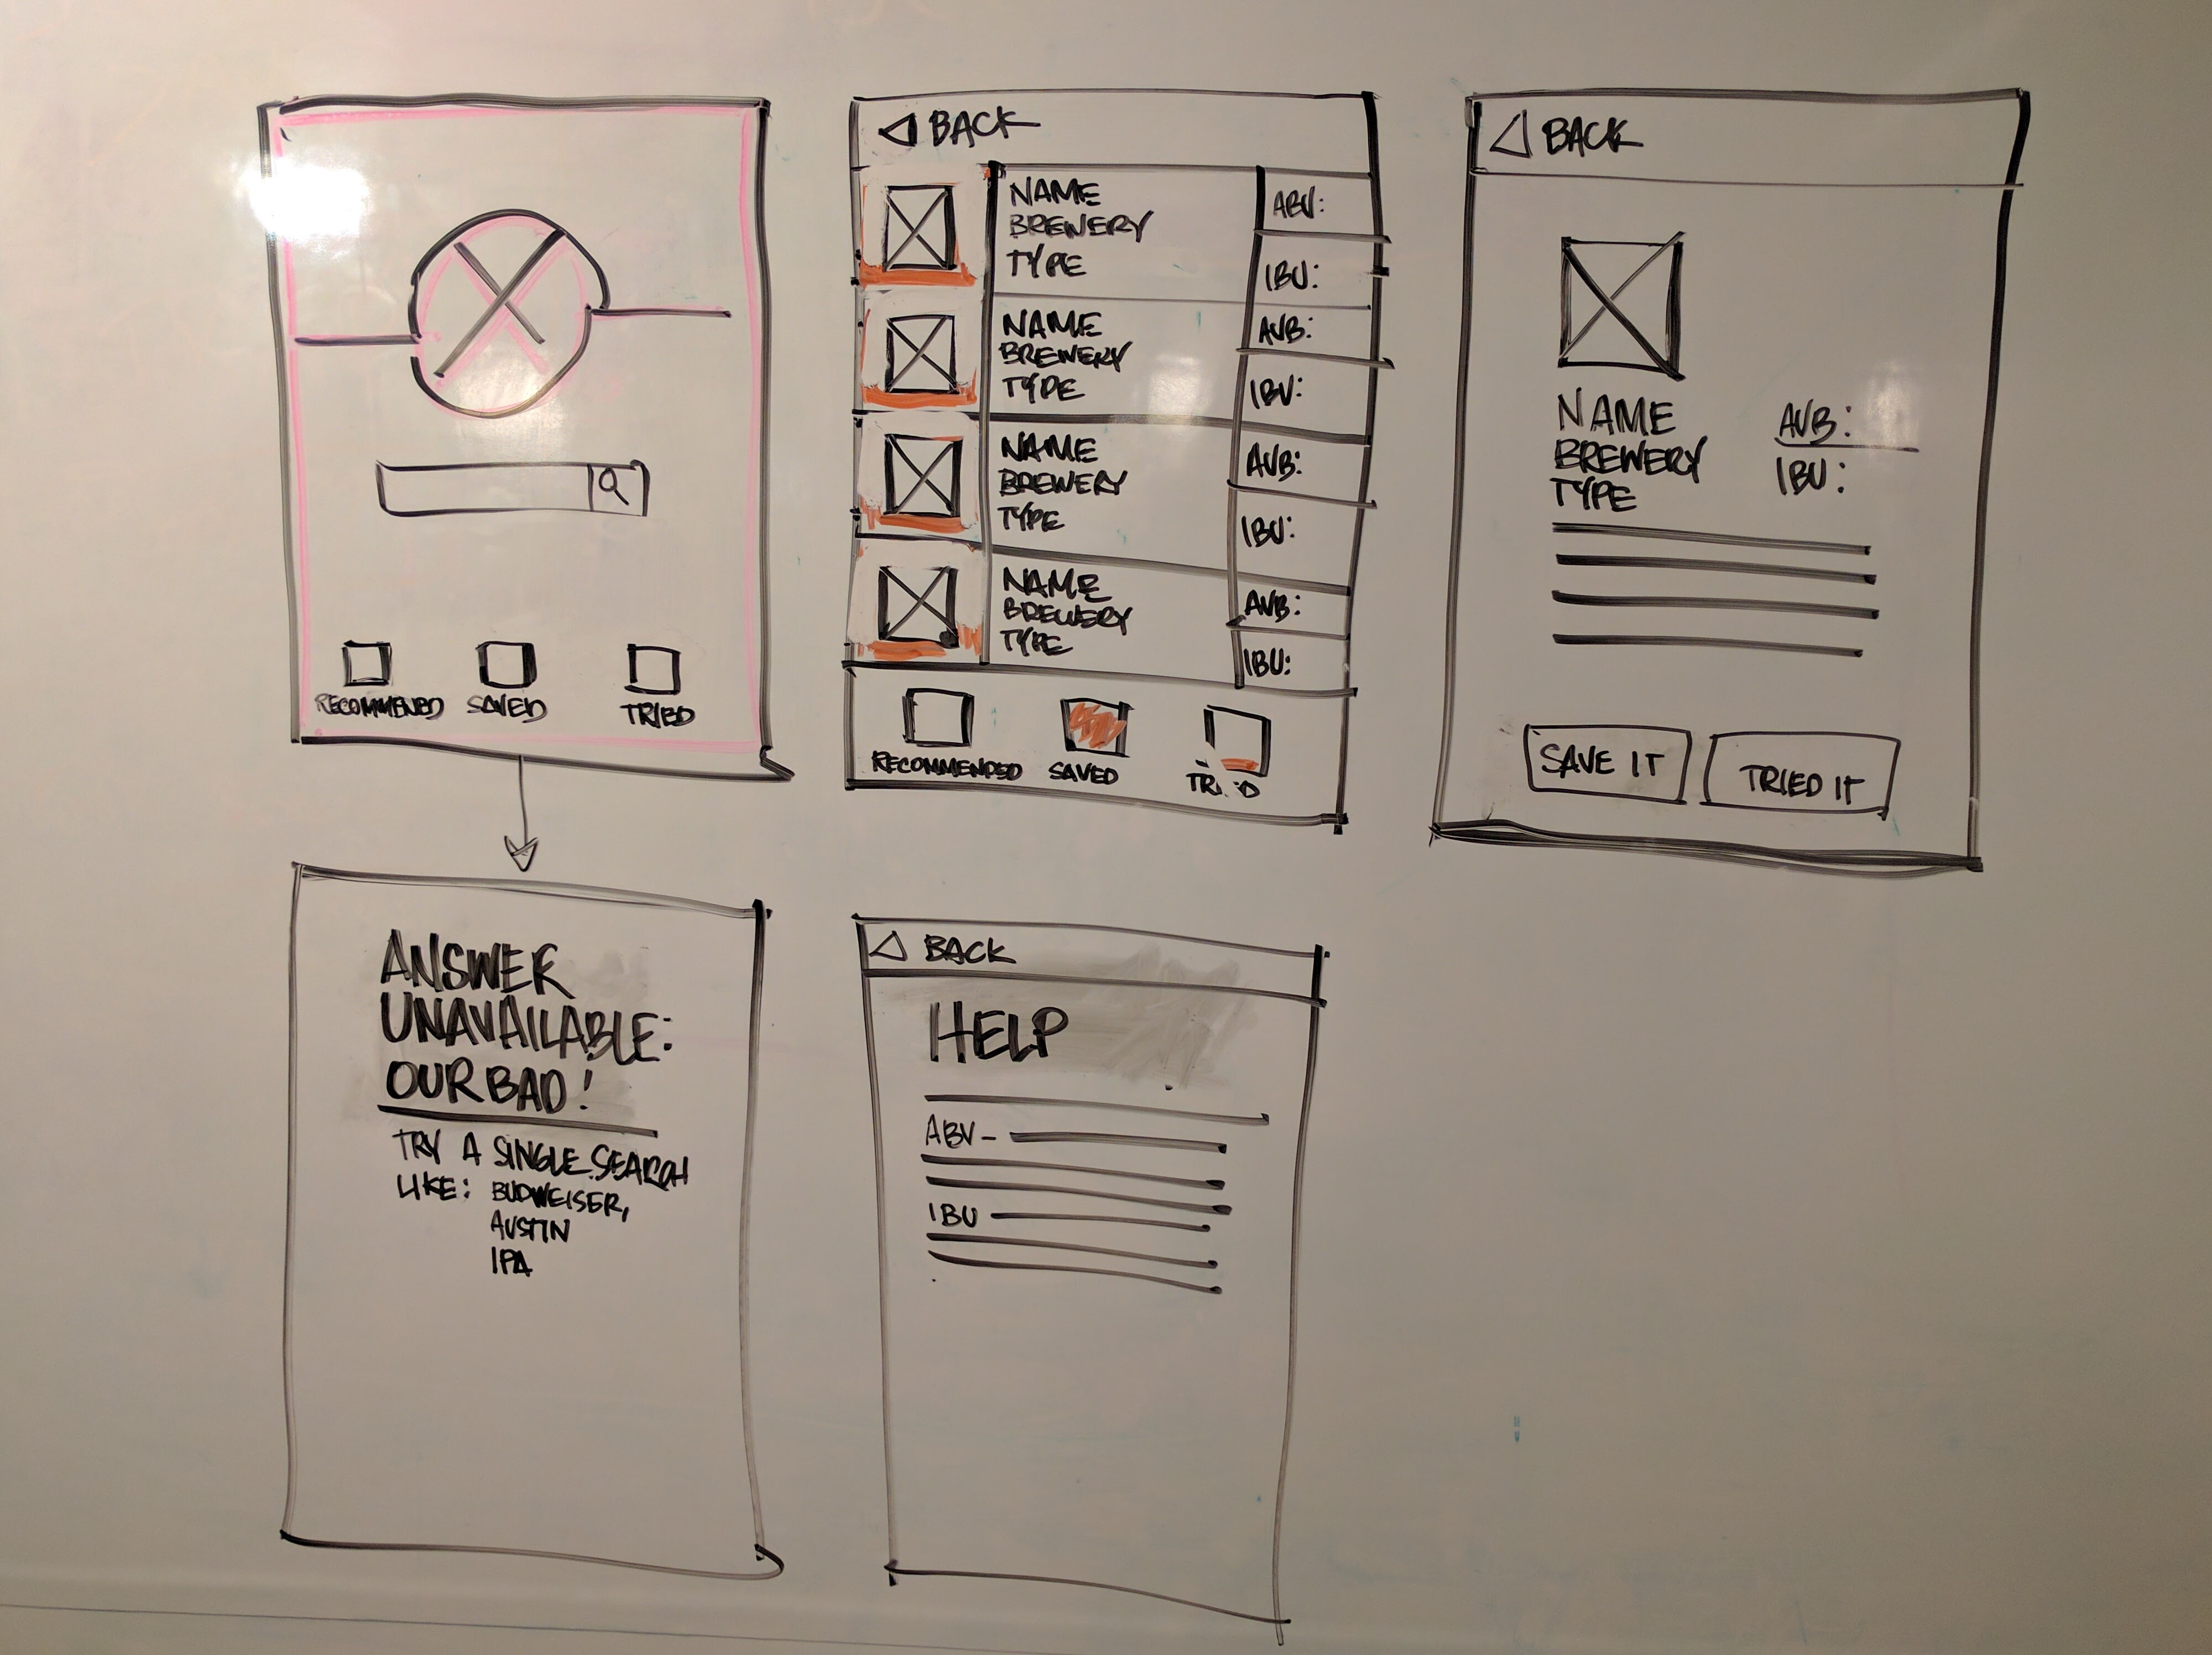 RECOMMENDED SAVED TRIED
BACK
NAME
BREWERY
TYPE
ABV:
IBU:
NAME
BREWERY
TYPE
AVB:
IBU:
NAME
BREWERY
TYPE
AVB:
IBU:
NAME
BREWERY
TYPE
AVB:
IBU:
RECOMMENDED SAVED
BACK
NAME
BREWERY
TYPE
AVB:
IBU:
SAVE IT
TRIED IT
ANSWER
UNAVAILABLE:
OUR BAD!
TRY A SINGLE SEARCH
LIKE: BUDWEISER,
AUSTIN
IPA
BACK
HELP
ABV -
IBU